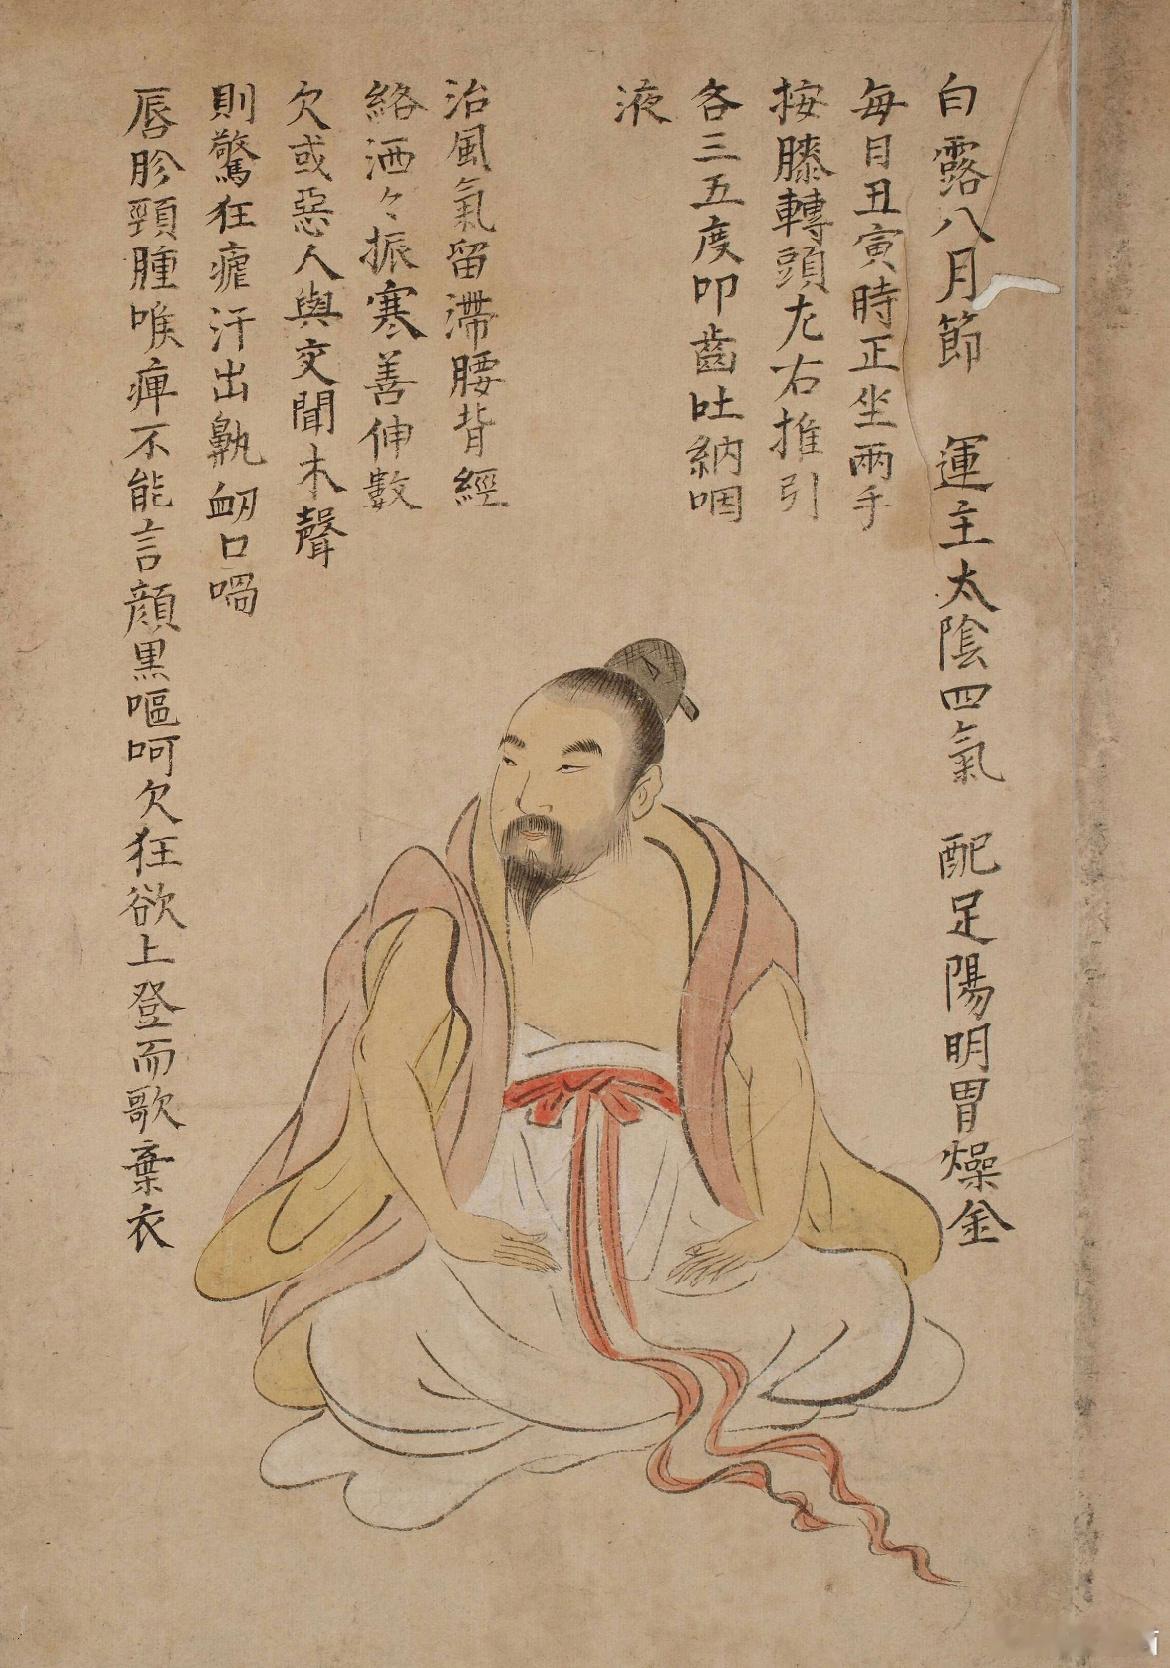 白露八月節　運主太陰四氣　配足陽明胃燥金
每日丑寅時正坐兩手
按膝轉頭左右推引
各三五度叩齒吐納咽
液
治風氣留滯腰背經
絡洒々振寒善伸數
欠或惡人與交聞木聲
則驚狂瘧汗出鼽衂口喎
唇胗頸腫喉痺不能言顔黒嘔呵欠狂欲上登而歌棄衣